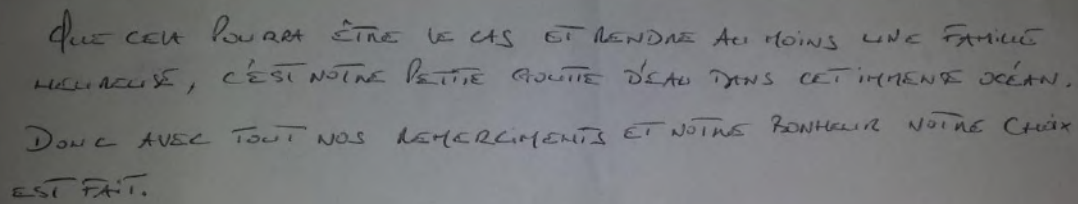 Que cela pourra être le cas et rendre au moins une famille
heureuse, c'est notre petite goutte d'eau dans cet immense océan.
Donc avec tout nos remerciments et notre bonheur notre choix
est fait.